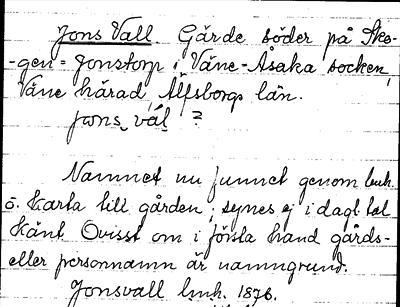 Jons Vall. Gärde söder på Sko-
-gen = Jonstorp i Väne-Åsaka socken,
Väne härad, Älfsborgs län.
jwns, vál ?
Namnet nu funnet genom lmh.
o. karta till gården; synes ej i dagl. tal
känt. Ovisst om i första hand gårds-
eller personnamn är namngrund.
Jonsvall lmh. 1876.